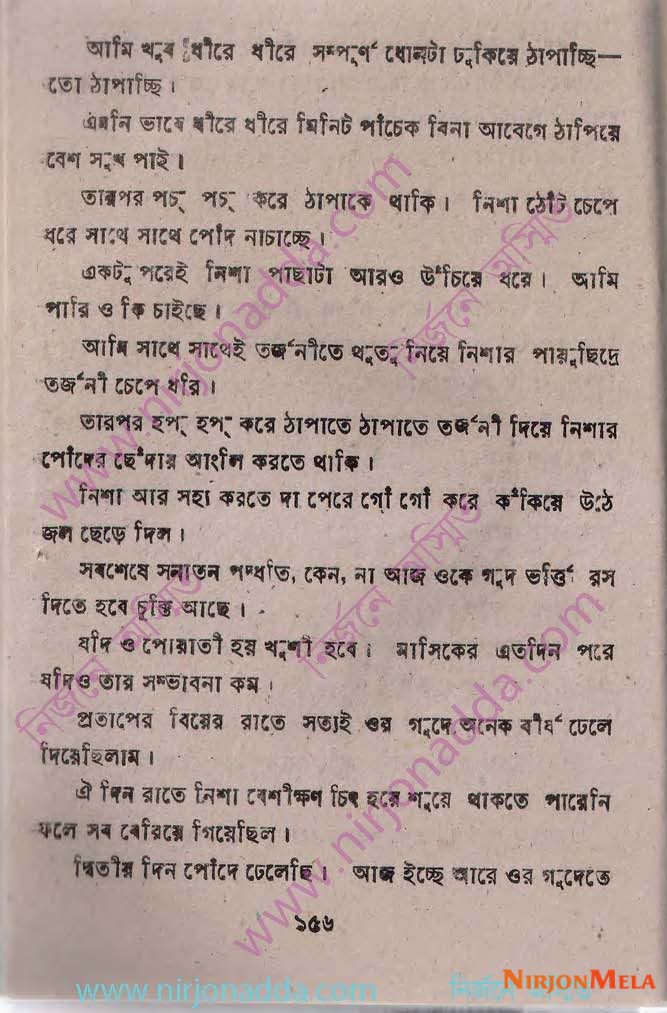 আমি খুব ধীরে ধীরে সম্পূর্ণ ধোনটা ঢুকিয়ে ঠাপাচ্ছি—
তো ঠাপাচ্ছি।
এমনি ভাবে ধীরে ধীরে মিনিট পাঁচেক বিনা আবেগে ঠাপিয়ে
বেশ সুখ পাই।
তারপর পচ্ পচ্ করে ঠাপাকে থাকি। নিশা ঠোঁট চেপে
ধরে সাথে সাথে পোঁদ নাচাচ্ছে।
একটু পরেই নিশা পাছাটা আরও উঁচিয়ে ধরে। আমি
পারি ও কি চাইছে।
আমি সাথে সাথেই তর্জনীতে থুতু নিয়ে নিশার পায়ুছিদ্রে
তর্জনী চেপে ধরি।
তারপর হপ্ হপ্ করে ঠাপাতে ঠাপাতে তর্জনী দিয়ে নিশার
পোঁদের ছেঁদায় আংলি করতে থাকি।
নিশা আর সহ্য করতে না পেরে গোঁ গোঁ করে কঁকিয়ে উঠে
জল ছেড়ে দিল।
সবশেষে সনাতন পদ্ধতি, কেন, না আজ ওকে গুদ ভর্ত্তি রস
দিতে হবে চুক্তি আছে।
যদি ও পোয়াতী হয় খুশী হবে। মাসিকের এতদিন পরে
যদিও তার সম্ভাবনা কম।
প্রতাপের বিয়ের রাতে সত্যই ওর গুদে অনেক বীর্য ঢেলে
দিয়েছিলাম।
ঐ দিন রাতে নিশা বেশীক্ষণ চিৎ হয়ে শুয়ে থাকতে পারেনি
ফলে সব বেরিয়ে গিয়েছিল।
দ্বিতীয় দিন পোঁদে ঢেলেছি। আজ ইচ্ছে আরে ওর গুদেতে
১৫৬
www.nirjonadda.com
নির্জনে অস্মিত
www.nirjonadda.com
নির্জনে অস্মিত
নির্জনে অস্মিত
www.nirjonadda.com
NIRJONMELA